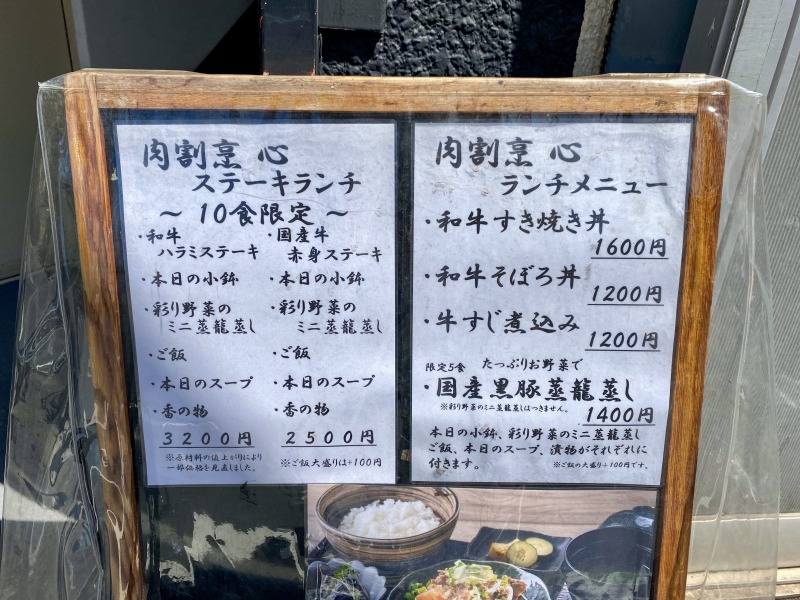 肉割烹 心
ステーキランチ
～ 10食限定 ～
・和牛
ハラミステーキ
・本日の小鉢
・彩り野菜の
ミニ蒸籠蒸し
・ご飯
・本日のスープ
・香の物
3200円
※原材料の値上がりにより
一部価格を見直しました。
・国産牛
赤身ステーキ
・本日の小鉢
・彩り野菜の
ミニ蒸籠蒸し
・ご飯
・本日のスープ
・香の物
2500円
※ご飯大盛りは+100円
肉割烹 心
ランチメニュー
・和牛すき焼き丼
1600円
・和牛そぼろ丼
1200円
・牛すじ煮込み
1200円
限定5食 たっぷりお野菜で
・国産黒豚蒸籠蒸し
※彩り野菜のミニ蒸籠蒸しはつきません。
1400円
本日の小鉢、彩り野菜のミニ蒸籠蒸し
ご飯、本日のスープ、漬物がそれぞれに
付きます。
※ご飯の大盛り+100円です。